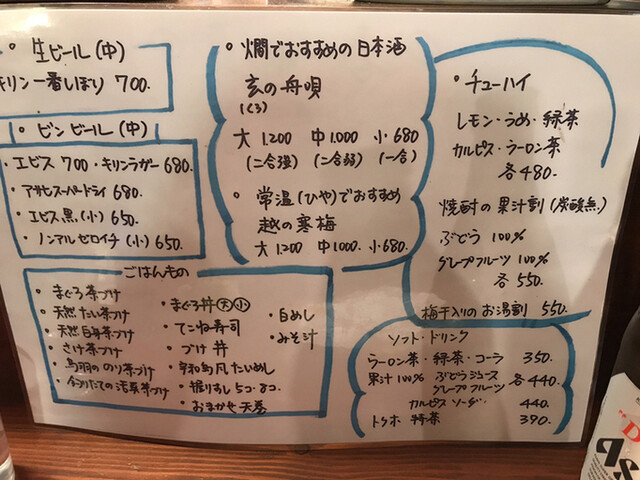 • 生ビール(中)
キリン一番しぼり 700.
• ビンビール(中)
• エビス 700 • キリンラガー 680.
• アサヒスーパードライ 680.
• エビス黒(小) 650.
• ノンアルゼロイチ(小) 650.
• 燗でおすすめの日本酒
玄の舟唄
(くろ)
大 1.200 中 1.000 小 680
(二合強) (二合弱) (一合)
• 常温(ひや)でおすすめ
越の寒梅
大 1.200 中 1000. 小 680.
• チューハイ
レモン・うめ・緑茶
カルピス・ウーロン茶
各 480.
• 焼酎の果汁割(炭酸無.)
ぶどう 100%
グレープフルーツ 100%
各 550.
梅干入りのお湯割 550.
ごはんもの
• まぐろ茶づけ
• 天然たい茶づけ
• 天然白身茶づけ
• さけ茶づけ
• 鳥羽ののり茶づけ
茶づけ
• まぐろ丼 大 小
• てこね寿司
• づけ丼
• 宇和島風たいめし
• 握りすし 5コ・8コ.
• おまかせ天巻
• 白めし
• みそ汁
ソフト・ドリンク
ウーロン茶・緑茶・コーラ 350.
果汁100% ぶどうジュース
グレープフルーツ 各 440.
カルピスソーダ 440.
トクホ 特茶 390.